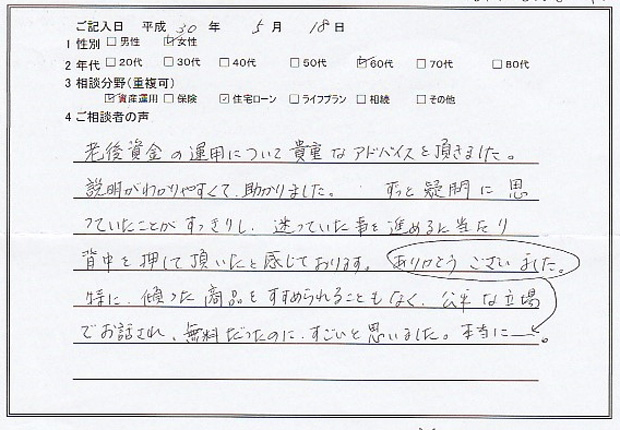 ご記入日 平成 30 年 5 月 18 日
1 性別 □ 男性 ☑ 女性
2 年代 □ 20代 □ 30代 □ 40代 □ 50代 ☑ 60代 □ 70代 □ 80代
3 相談分野(重複可)
☑ 資産運用 □ 保険 ☑ 住宅ローン □ ライフプラン □ 相続 □ その他
4 ご相談者の声
老後資金の運用について貴重なアドバイスを頂きました。
説明がわかりやすくて、助かりました。 ずっと疑問に思
っていたことがすっきりし、迷っていた事を進めるに当たり
背中を押して頂いたと感じております。ありがとうございました。
特に、傾った商品をすすめられることもなく、公平な立場
でお話され、無料だったのに、すごいと思いました。本当に―。